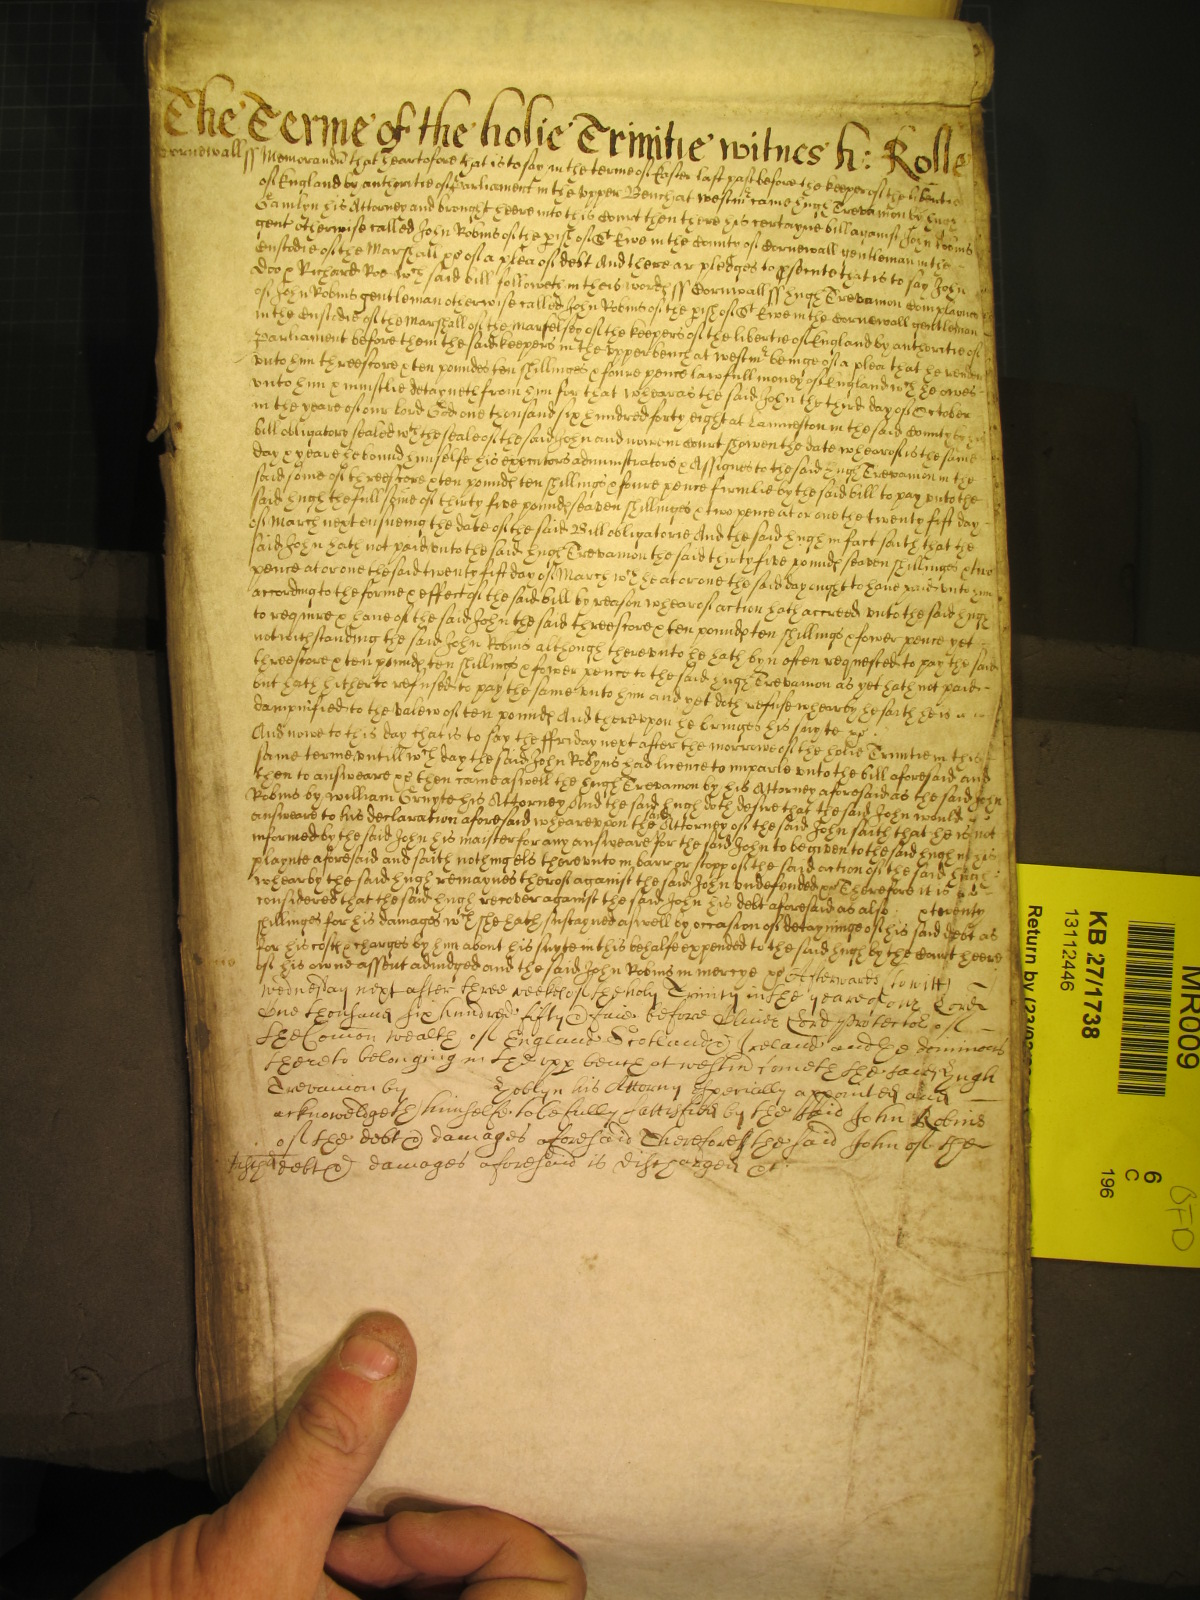 The Terme of the holie Trinitie witnes h: Rolle
Cornewall ss Memorandu that heartofore that is to say in the terme of Easter last past before the keepers of the libertie
of England by authoritie of Parliament in the upper Bench at westmr came hugh Trevanion by hugh
Gamlyn his Attorney and brought heere into this Court then there his certayne bill against John Robins
gent otherwise called John Robins of the pish of St Ewe in the County of Cornewall gentleman in the
Custodie of the Marshall &c of a plea of debt And there ar pledges to psecute that is to say John
Doo & Richard Roe wch said bill followeth in theis words ss Cornwall ss hugh Trevanion Complaines
of John Robins gentleman otherwise called John Robins of the pish of St Ewe in the Cornewall gentleman
in the Custodie of the Marshall of the Marselsey of the keepers of the libertie of England by authoritie of
Parliament before them the said keepers in the upper bench at westmr beinge of a plea that he render
unto him threescore & ten poundes ten shillinges & foure pence lawfull money of England wch he owes
unto him & uniustlie detayneth from him for that wheareas the said John the third day of October
in the yeare of our lord God one thousand six hundred forty eight at Launceston in the said County by his
bill obligatory sealed wth the seale of the said John and nowe in Court shewen the date whearof is the same
day & yeare he bound himselfe his executors administrators & Assignes to the said hugh Trevanion in the
said some of threescore & ten pounds ten shillings & foure pence firmlie by the said bill to pay unto the
said hugh the full some of thirty five pounds seaven shillinges & two pence at or one the twenty fift day
of March next ensueing the date of the said Bill obligatorie And the said hugh in fact saith that the
said John hath not paid unto the said hugh Trevanion the said thirty five pounds seaven shillinges & two
pence at or one the said twenty fift day of March wch he at or one the said day ought to have paid unto him
according to the forme & effect of the said bill by reason whearof action hath accreed unto the said hugh
to require & have of the said John the said threescore & ten pounds ten shillings & fower pence yet
notwithstanding the said John Robins although thereunto he hath byn often requested to pay the said
threescore & ten pounds ten shillings & fower pence to the said hugh Trevanion as yet hath not paid
but hath hitherto refused to pay the same unto him and yet doth refuse wheareby he saith he is
dampnified to the valew of ten pounds And thereupon he bringes his suyte &c
And nowe to this day that is to say the ffriday next after the morrowe of the holie Trinitie in this
same terme untill wch day the said John Robyns had licence to imparle unto the bill aforesaid and
then to answeare &c then came aswell the hugh Trevanion by his Attorney aforesaid as the said John
Robins by william Gruyte his Attorney And the said hugh doth desire that the said John would
answeare to his declaration aforesaid wheareupon the said Attorney of the said John saith that he is not
informed by the said John his maister for any answeare for the said John to be given to the said hugh in his
playnte aforesaid and saith nothing els thereunto in barr or stopp of the said action of the said hugh
wheareby the said hugh remaynes therof against the said John undefended &c Therefore it is
considered that the said hugh recover against the said John his debt aforesaid as also & twenty
shillinges for his damages wch he hath sustayned aswell by occasion of detayninge of his said debt as
for his costs & charges by him about his suyte in this behalfe expended to the said hugh by the Court heere
of his owne assent adiudged and the said John Robins in mercye &c Afterwards to witt
wednesday next after three weekes of the holy Trinity in the yeare of our Lord
One thousand six hundred fifty & four before Oliver Lord protector of
the Comon wealth of England Scotland & Ireland and the dominions
thereto belonging in the upp bench at westmr cometh the said Hugh
Trevanion by Joblyn his Attorny specially appointed and
acknowledgeth himselfe to be fully sattisfied by the said John Robins
of the debt & damages aforesaid Therefore the said John of the
debt & damages aforesaid is discharged &c
MR009
KB 27/1738
13112446
6
C
196